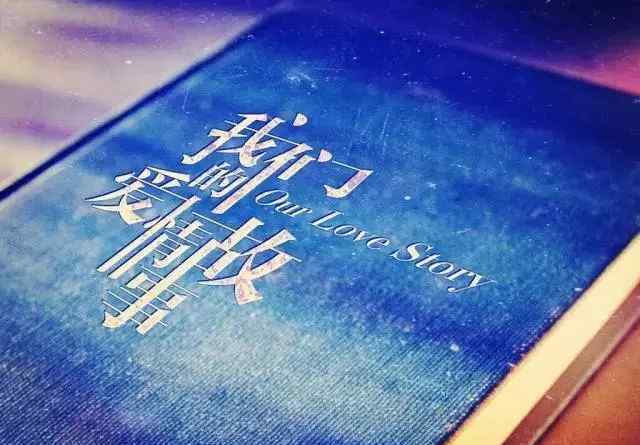 我们
的
爱情故事
Our Love Story